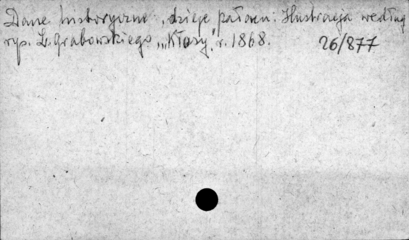 Dane historyczne, dzieje pałacu. Ilustracja według
rys. L. Grabowskiego, „Kłosy”, r. 1868. 26/877